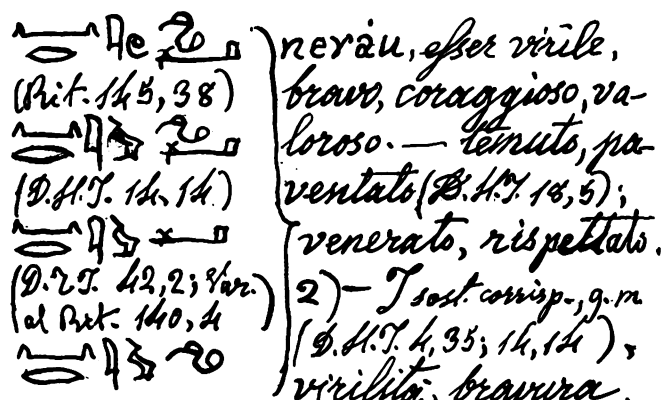 (Rit. 145, 38)
(D.H.T. 14, 14)
(D.2T. 42, 2; Var.
al Rit. 140, 4)
neràu, esser virile,
bravo, coraggioso, va-
loroso. — temuto, pa-
ventato (D.H.T. 18, 5);
venerato, rispettato.
2) — I sost. corrisp., g. m
(D.H.T. 4, 35; 14, 14),
virilità, bravura.